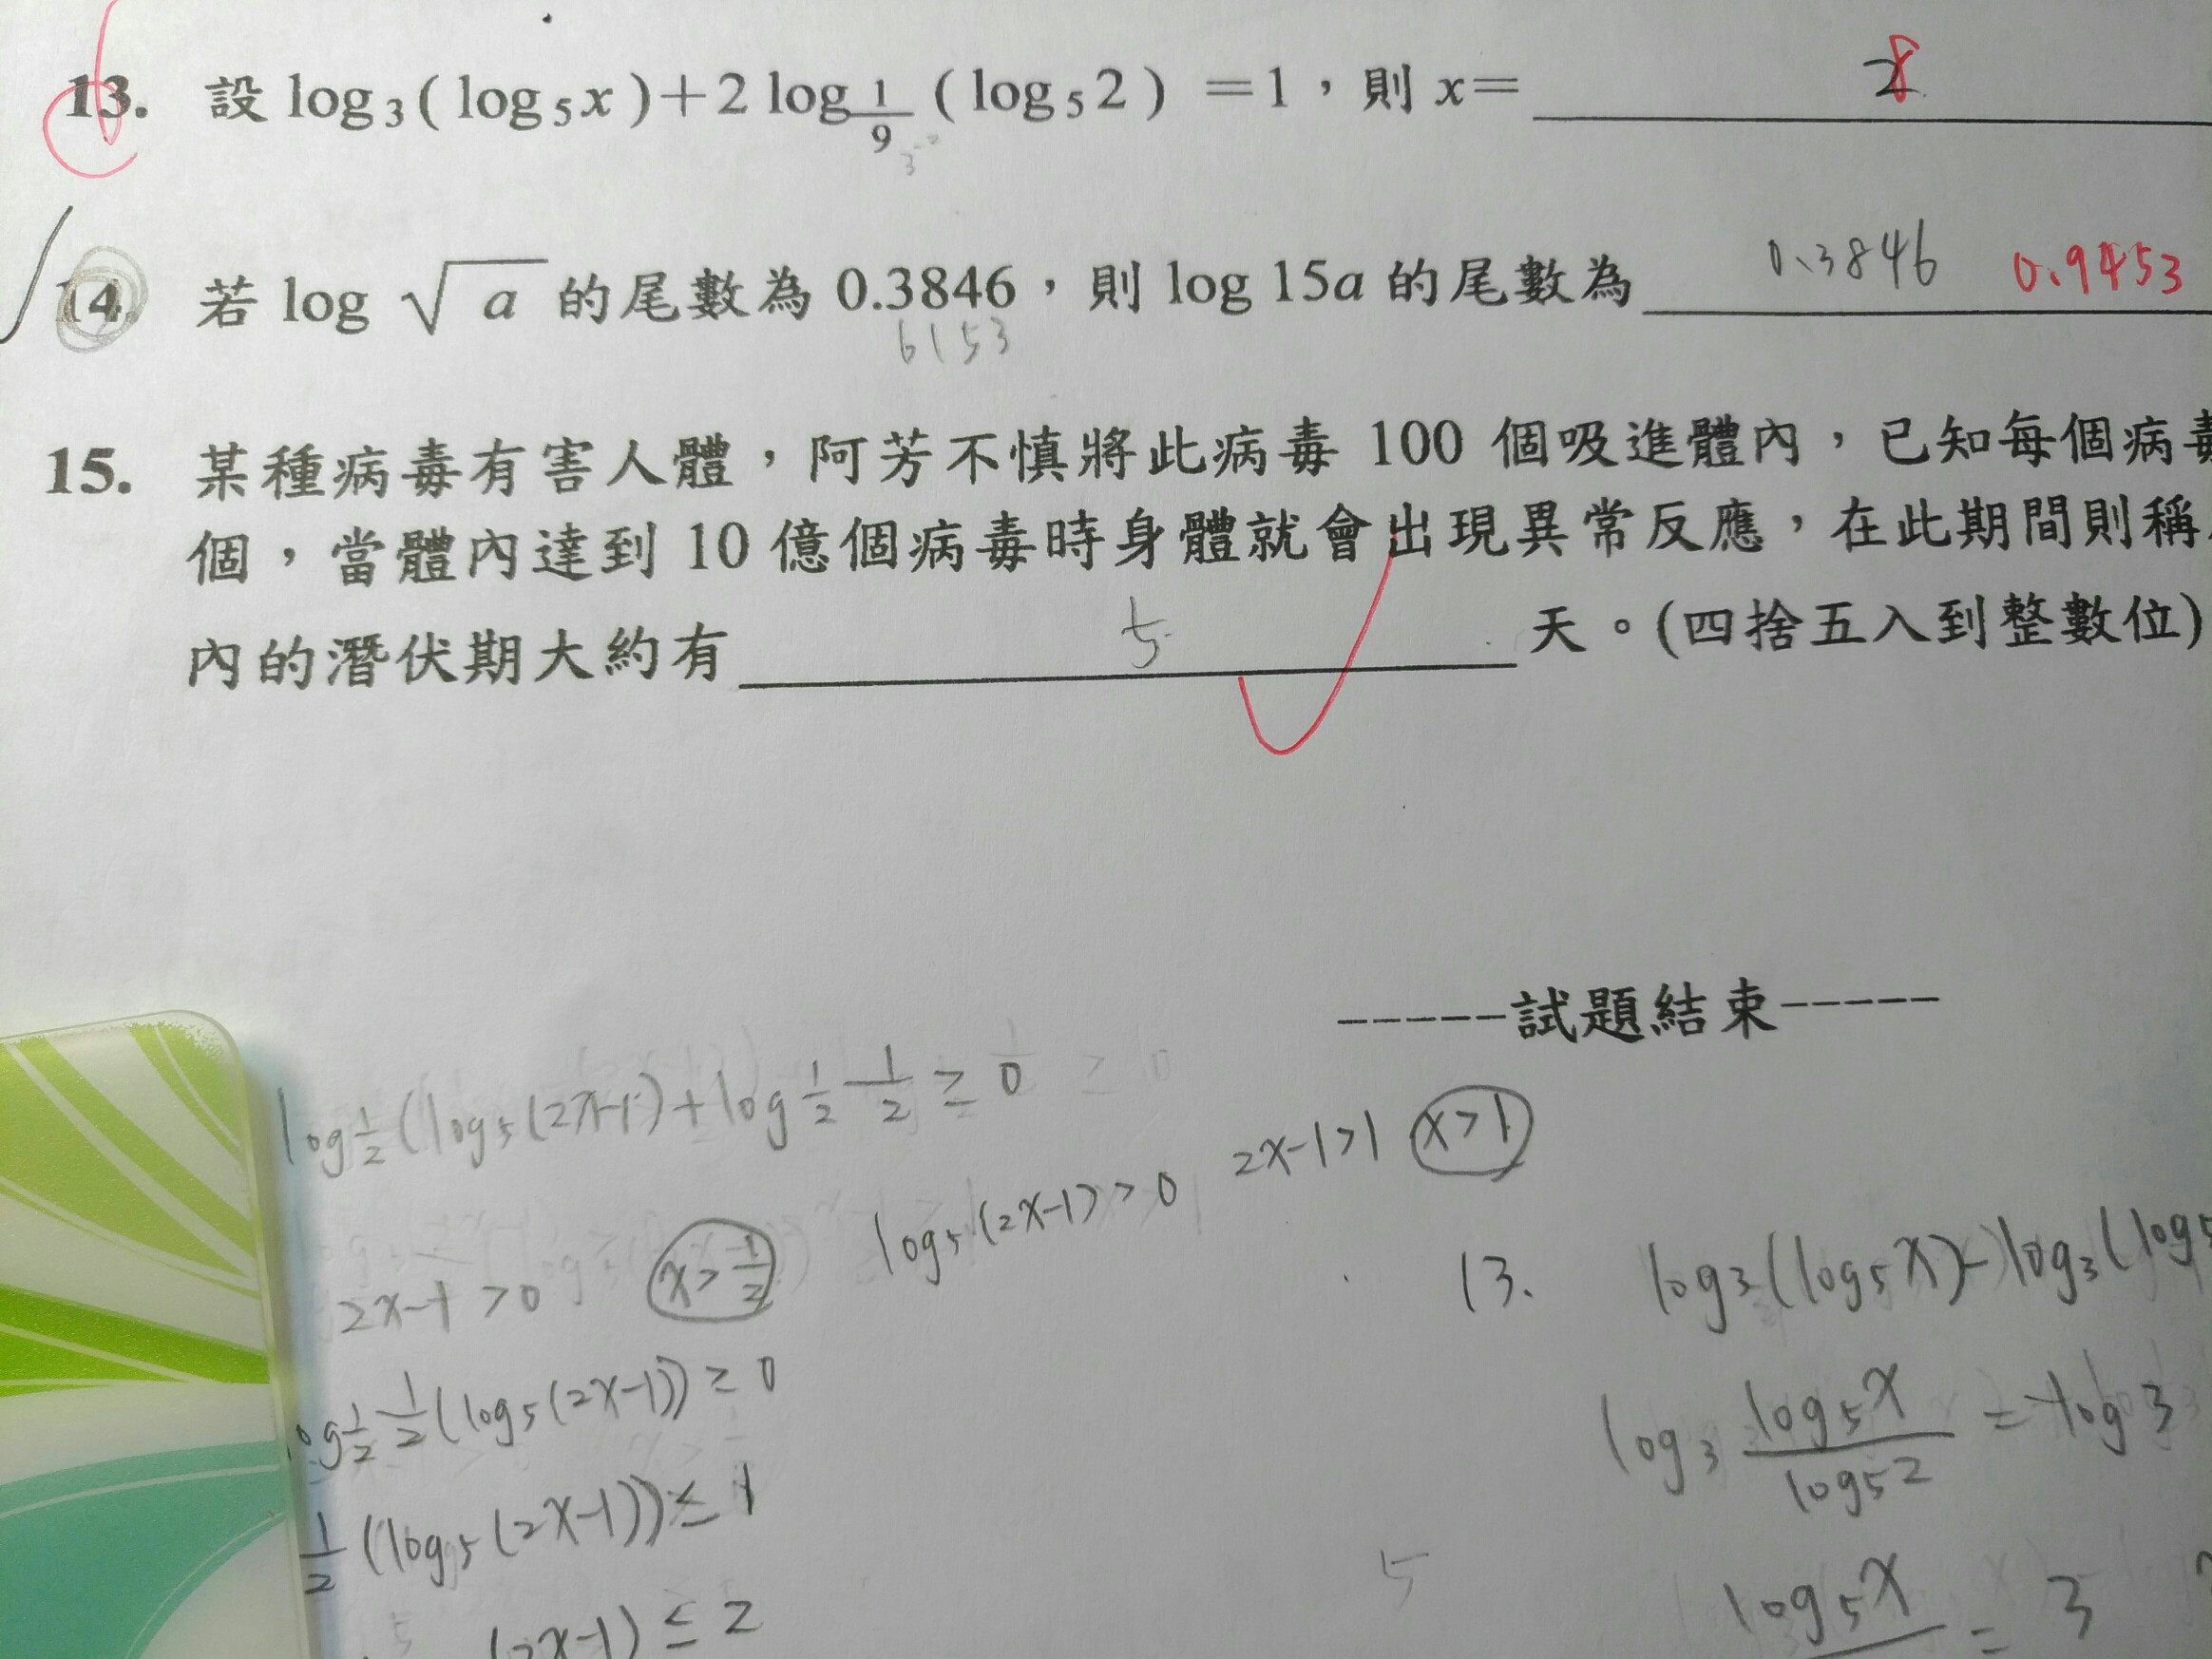 13. 設 log₃( log₅x )+2 log_{1/9} ( log₅2 ) =1，則 x= 8
3⁻²
14. 若 log √a 的尾數為 0.3846，則 log 15a 的尾數為 0.3846 0.9453
6153
15. 某種病毒有害人體，阿芳不慎將此病毒 100 個吸進體內，已知每個病毒
個，當體內達到 10 億個病毒時身體就會出現異常反應，在此期間則稱
內的潛伏期大約有 5 天。(四捨五入到整數位)
-----試題結束-----
log_{1/2}(log₅(2x-1)+log_{1/2} 1/2 ≥ 0
2x-1>0 x>1/2 log₅(2x-1)>0 2x-1>1 x>1
log_{1/2} 1/2(log₅(2x-1)) ≥ 0
1/2 (log₅(2x-1)) ≤ 1
(2x-1) ≤ 2
13. log₃(log₅x)-log₃(log₅
log₃ log₅x/log₅2 = log 3
5
log₅x = 3